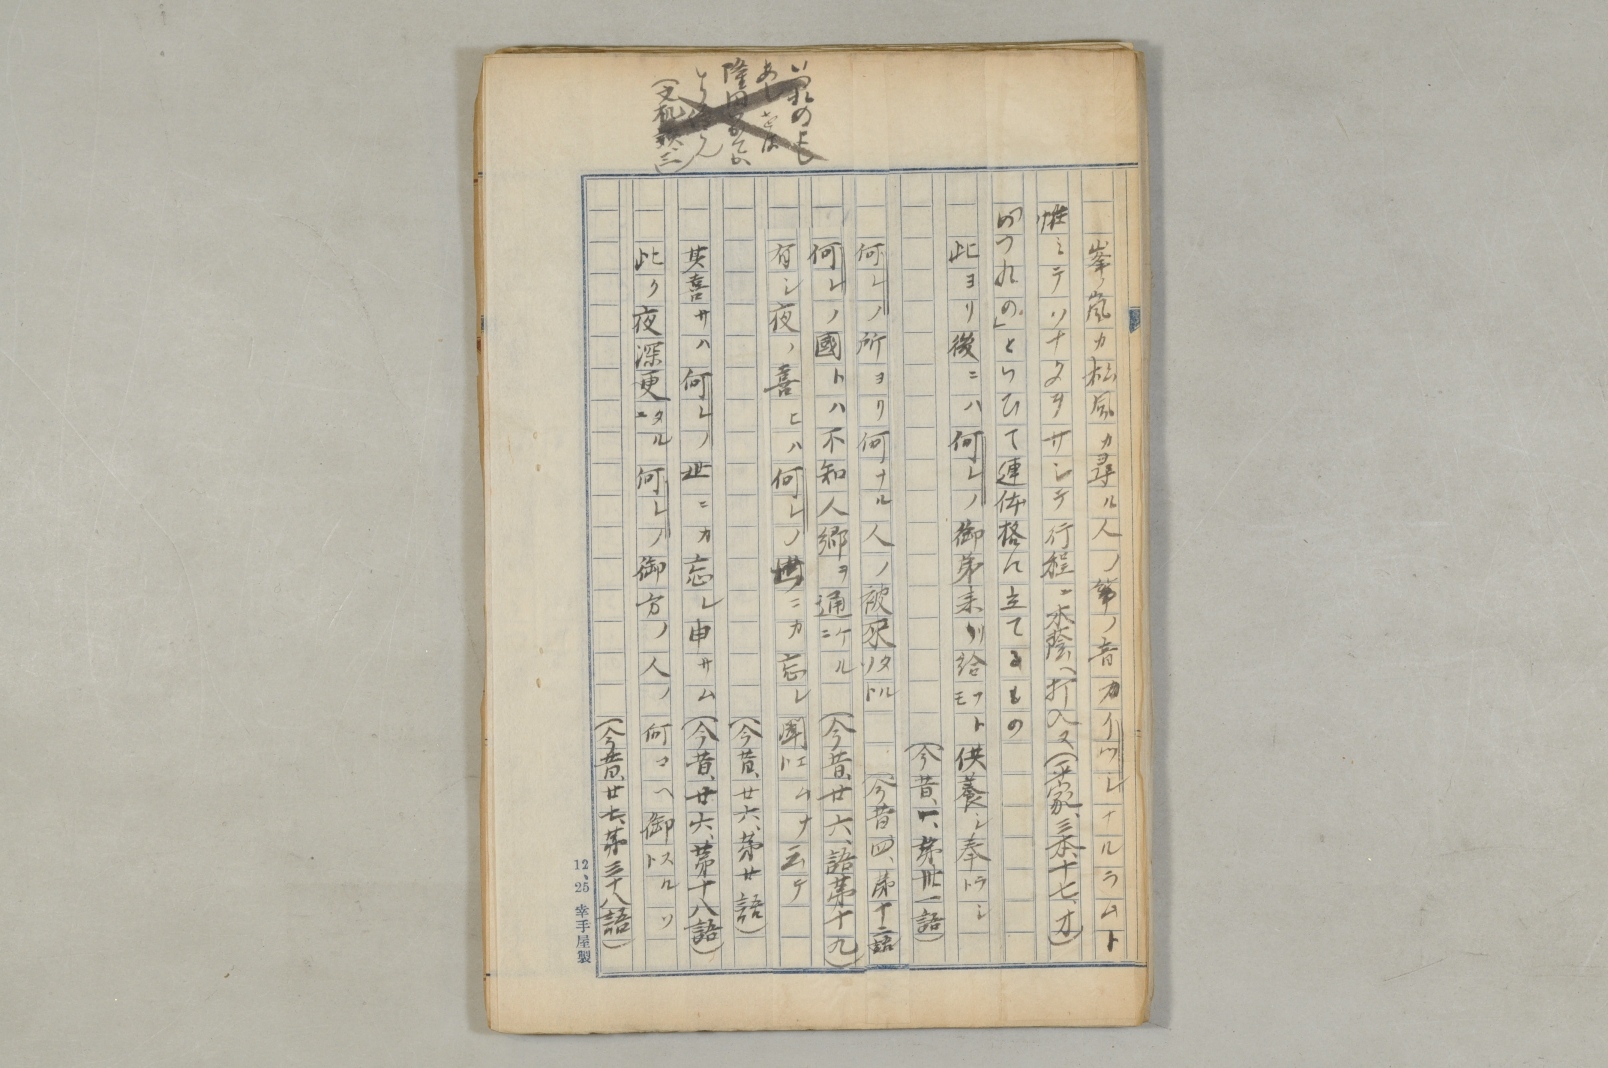 峯ノ嵐カ松風カ尋ル人ノ箏ノ音カイツレナルラムト
惟ミテソナタヲサシテ行程ニ木蔭ヘ打入ヌ(平家、三本、十七、オ)
「いづれの」といひて連体格に立てるもの
此ヨリ後ニハ何レノ御弟来リ給フトモ供養シ奉ラシト
(今昔、六、第卅一語)
何レノ所ヨリ何ナル人ノ被来タルソト
(今昔四、第十二語
何レノ國トハ不知人郷ヲ通ニケル(今昔廿六、語第十九)
有シ夜ノ喜ヒハ何レノ世ニカ忘レ聞エムナト云テ
(今昔、廿六、第廿語)
其喜サハ何レノ世ニカ忘レ申サム(今昔、廿六、第十八語)
此ク夜深更ニタル何レノ御方ノ人ノ何コヘ御スルソト
(今昔、廿七、第三十八語)
12、25 幸手屋製